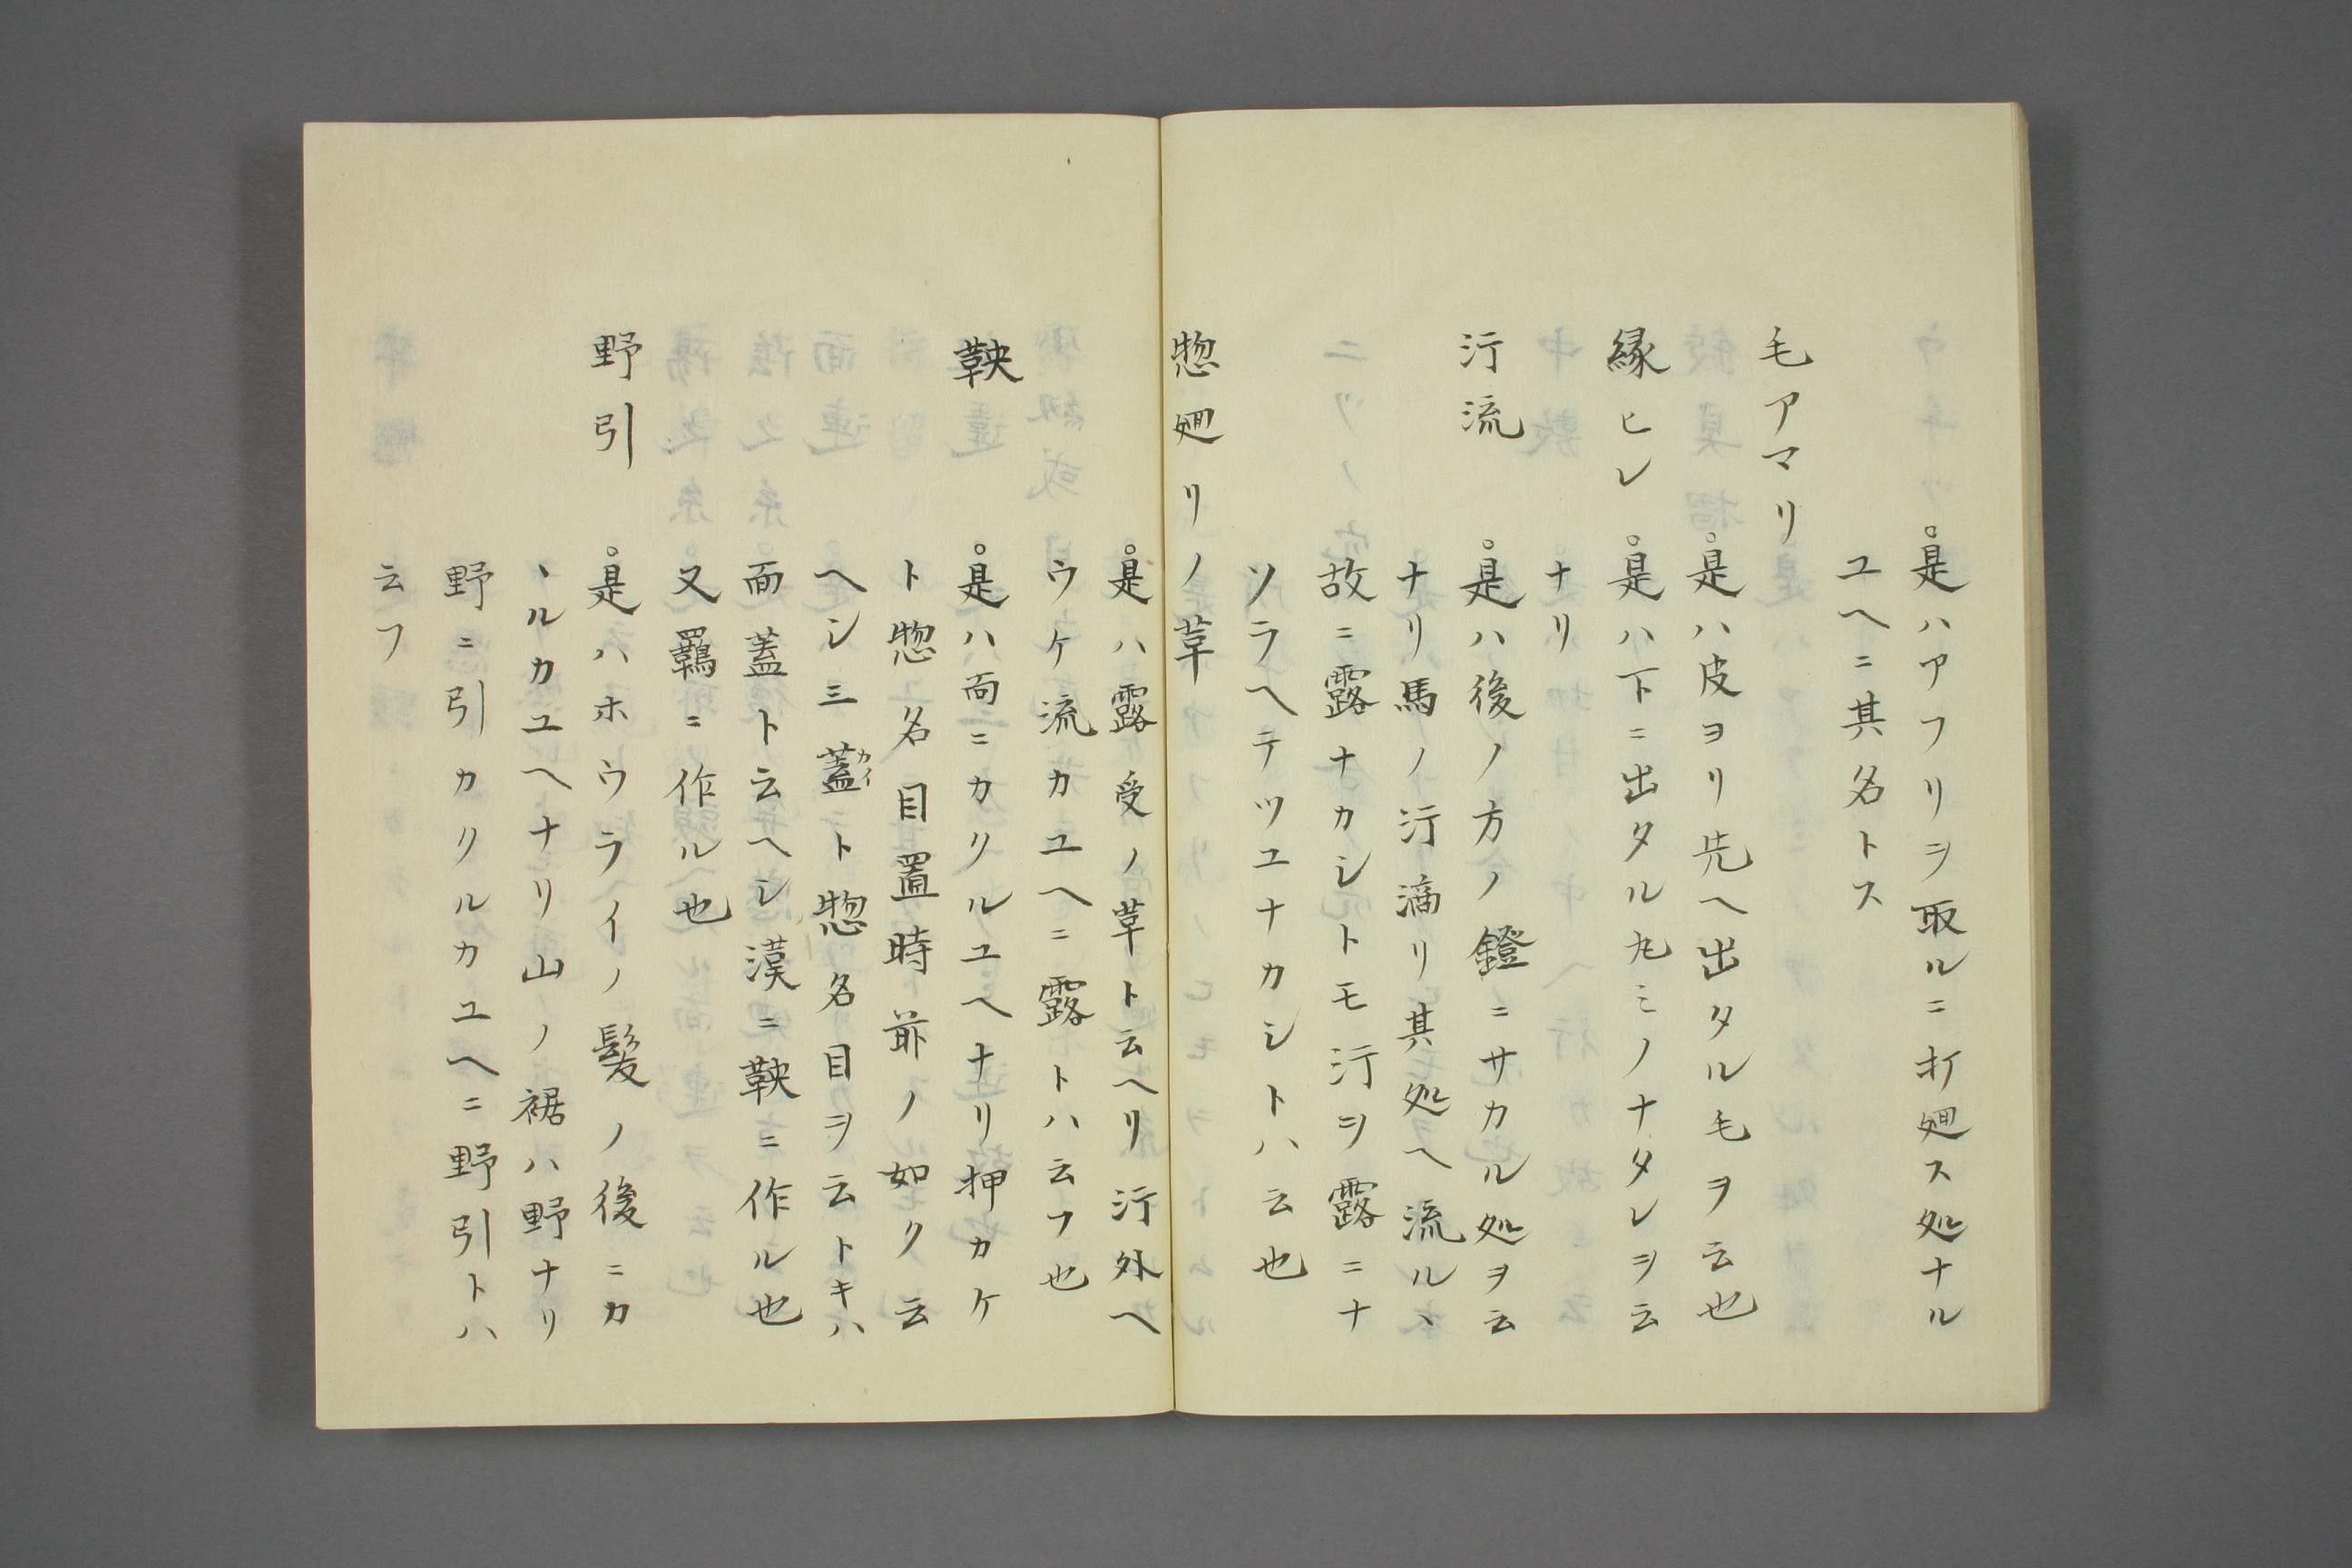 。是ハアフリヲ取ルニ折廻ス処ナル
ユヘニ其名トス
毛アマリ
。是ハ皮ヨリ先ヘ出タル毛ヲ云也
縁ヒレ 。是ハ下ニ出タル丸ミノナタレヲ云
ナリ
汗流 。是ハ後ノ方ノ鐙ニサカル処ヲ云
ナリ馬ノ汗滴リ其処ヘ流ルヽ
故ニ露ナカシトモ汗ヲ露ニナ
ソラヘテツユナカシトハ云也
惣廻リノ革
。是ハ露受ノ革ト云ヘリ汗外ヘ
ウケ流カユヘニ露トハ云フ也
鞅 。是ハ面ニカクルユヘナリ押カケ
ト惣名目置時前ノ如ク云
ヘシ三蓋カイト惣名目ヲ云トキハ
面蓋ト云ヘシ漢ニ鞅ニ作ル也
又羈ニ作ル也
野引 。是ハホウライノ髪ノ後ニカ
ヽルカユヘナリ山ノ裾ハ野ナリ
野ニ引カクルカユヘニ野引トハ
云フ